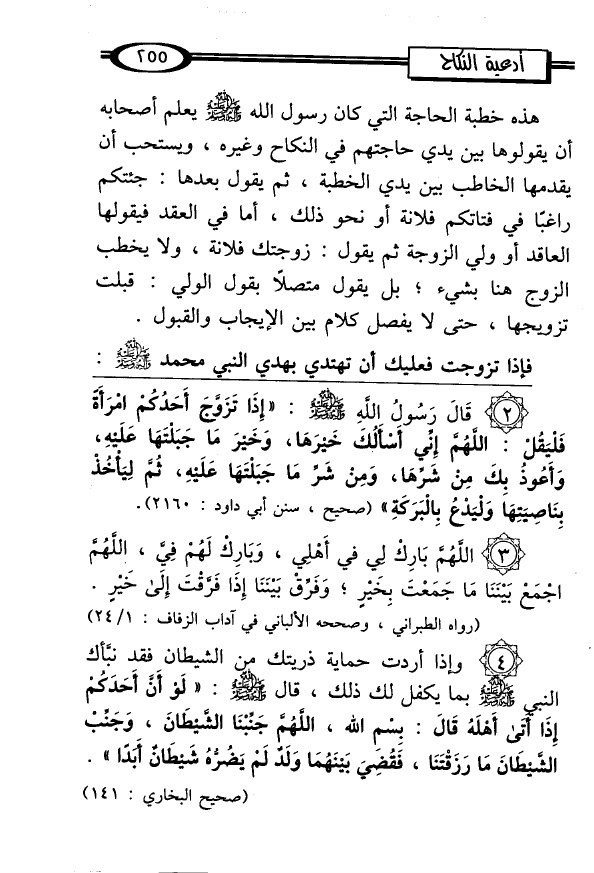 أدعية النكاح
٢٥٥
هذه خطبة الحاجة التي كان رسول الله ﷺ يعلم أصحابه
أن يقولوها بين يدي حاجتهم في النكاح وغيره ، ويستحب أن
يقدمها الخاطب بين يدي الخطبة ، ثم يقول بعدها : جئتكم
راغبًا في فتاتكم فلانة أو نحو ذلك ، أما في العقد فيقولها
العاقد أو ولي الزوجة ثم يقول : زوجتك فلانة ، ولا يخطب
الزوج هنا بشيء ؛ بل يقول متصلاً بقول الولي : قبلت
تزويجها ، حتى لا يفصل كلام بين الإيجاب والقبول .
فإذا تزوجت فعليك أن تهتدي بهدي النبي محمد ﷺ :
٢ قَالَ رَسُولُ اللَّهِ ﷺ : «إِذَا تَزَوَّجَ أَحَدُكُمْ امْرَأَةً
فَلْيَقُلْ : اللَّهُمَّ إِنِّي أَسْأَلُكَ خَيْرَهَا، وَخَيْرَ مَا جَبَلْتَهَا عَلَيْهِ،
وَأَعُوذُ بِكَ مِنْ شَرِّهَا، وَمِنْ شَرِّ مَا جَبَلْتَهَا عَلَيْهِ، ثُمَّ لِيَأْخُذْ
بِنَاصِيَتِهَا وَلْيَدْعُ بِالْبَرَكَةِ» (صحيح ، سنن أبي داود : ٢١٦٠).
٣ اللَّهُمَّ بَارِكْ لِي فِي أَهْلِي ، وَبَارِكْ لَهُمْ فِيَّ ، اللَّهُمَّ
اجْمَعْ بَيْنَنَا مَا جَمَعْتَ بِخَيْرٍ ؛ وَفَرِّقْ بَيْنَنَا إِذَا فَرَّقْتَ إِلَى خَيْرٍ .
(رواه الطبراني ، وصححه الألباني في آداب الزفاف : ٢٤/١)
٤ وإذا أردت حماية ذريتك من الشيطان فقد نبَّأك
النبي ﷺ بما يكفل لك ذلك ، قال ﷺ : «لَوْ أَنَّ أَحَدَكُمْ
إِذَا أَتَى أَهْلَهُ قَالَ : بِسْمِ الله ، اللَّهُمَّ جَنِّبْنَا الشَّيْطَانَ ، وَجَنِّبْ
الشَّيْطَانَ مَا رَزَقْتَنَا ، فَقُضِيَ بَيْنَهُمَا وَلَدٌ لَمْ يَضُرُّهُ شَيْطَانٌ أَبَدًا» .
(صحيح البخاري : ١٤١)